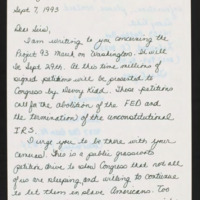 Sept 7, 1993
Dear Sirs,
I am writing to you concerning the
Project 93 March on Washington. It will
be Sept 29th. At this time millions of
signed petitions will be presented to
Congress by Denny Kidd. These petitions
call for the abolition of the FED and
the termination of the unconstitutional
IRS.
I urge you to be there with your
cameras. This is a public grassroots
petition drive to show Congress that not all
of us are sleeping and willing to continue
to let them enslave Americans. Too